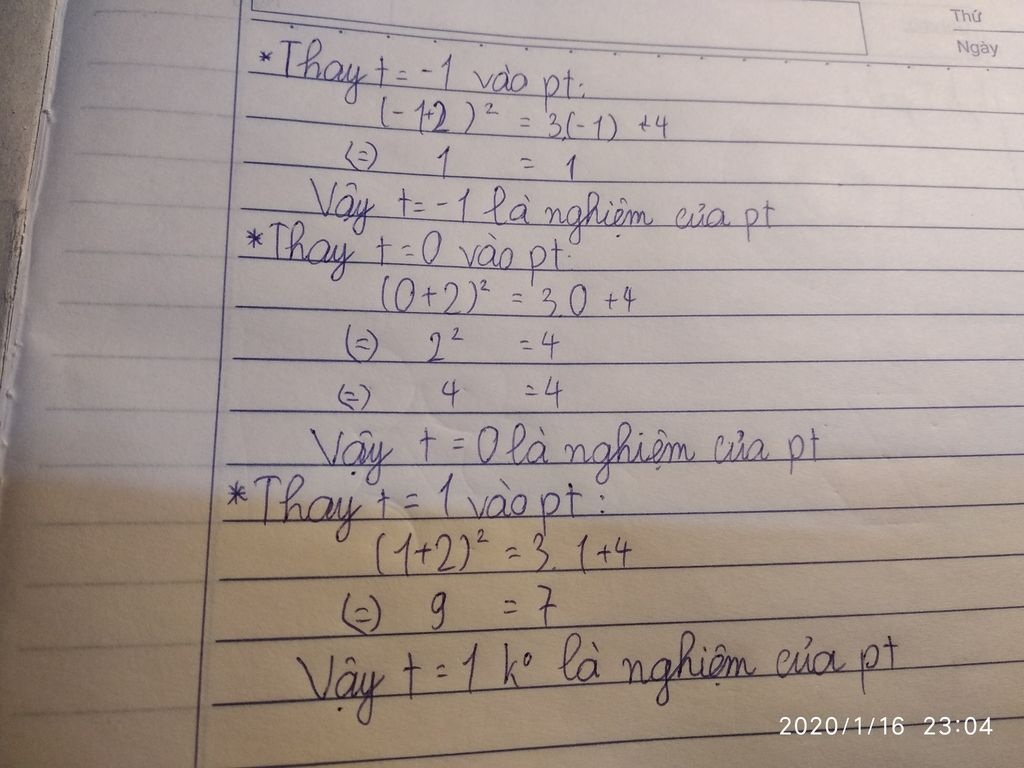 Thứ
Ngày
* Thay t = -1 vào pt:
(-1+2)² = 3.(-1) +4
(=) 1 = 1
Vậy t = -1 là nghiệm của pt
* Thay t = 0 vào pt.
(0+2)² = 3.0 +4
(=) 2² = 4
(=) 4 = 4
Vậy t = 0 là nghiệm của pt
* Thay t = 1 vào pt :
(1+2)² = 3. 1+4
(=) 9 = 7
Vậy t = 1 kº là nghiệm của pt
2020/1/16 23:04